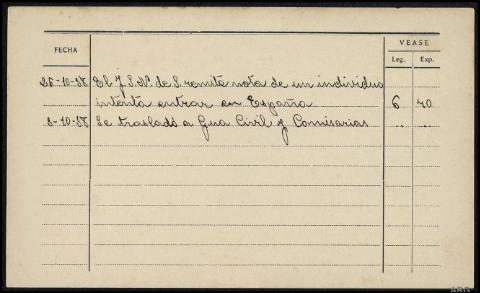 VEASE
FECHA Leg. Exp.
25-10-38 El J.S.N. de S. remite nota de un individuo
intenta entrar en España 6 40
8-10-38 Se trasladó a Gua Civil y Comisarias " "